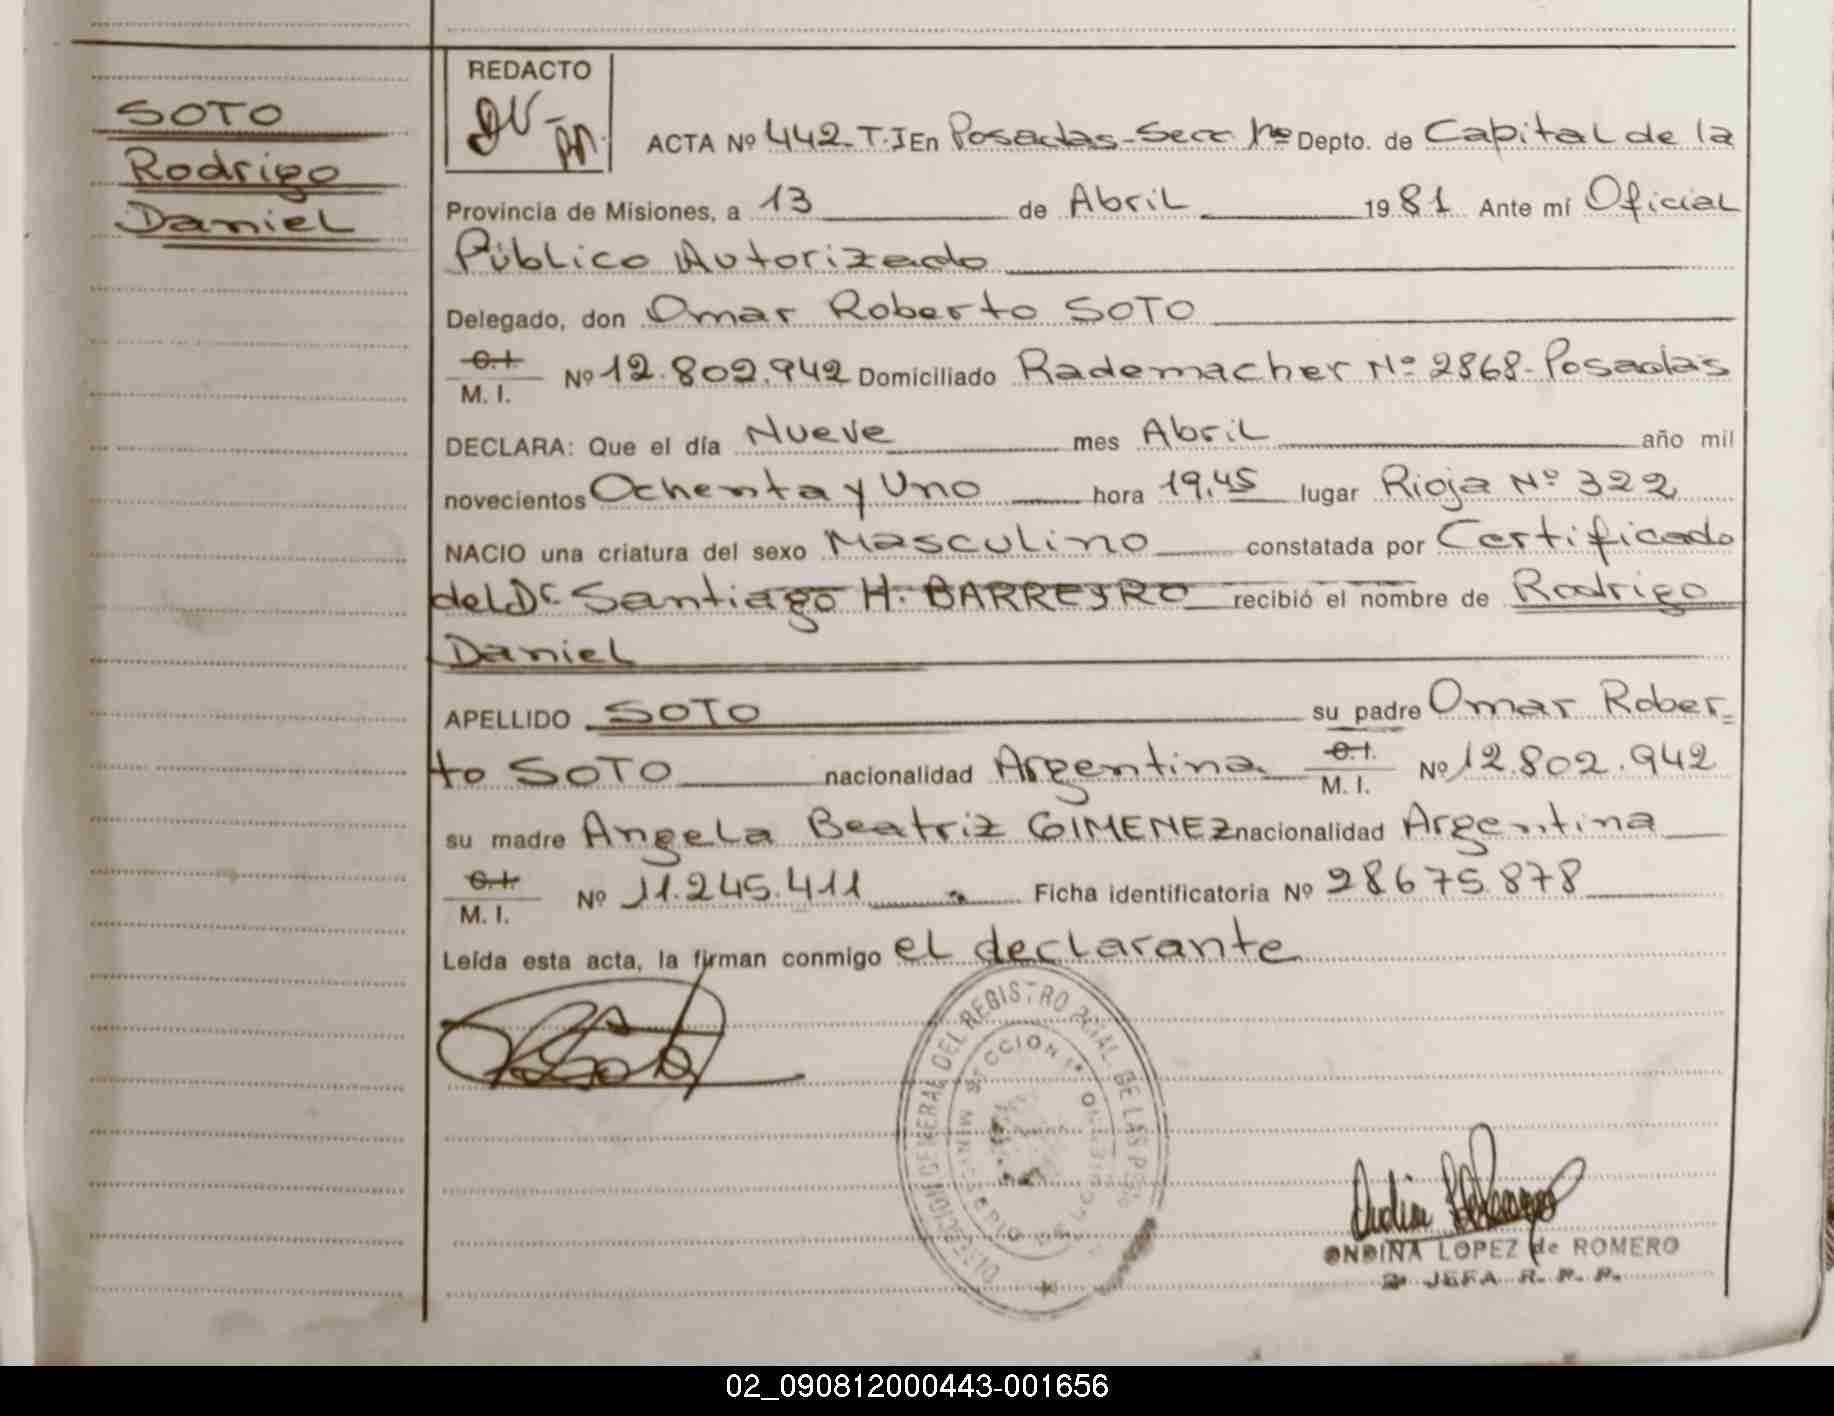 SOTO
Rodrigo
Daniel
REDACTO
ACTA Nº 442 T.I En Posadas-Secc 1ª Depto. de Capital de la
Provincia de Misiones, a 13 de Abril 1981 Ante mí Oficial
Público Autorizado
Delegado, don Omar Roberto SOTO
C.I. M. I. Nº 12.802.942 Domiciliado Rademacher Nº 2868-Posadas
DECLARA: Que el día Nueve mes Abril año mil
novecientos Ochenta y Uno hora 19,45 lugar Rioja Nº 322
NACIO una criatura del sexo Masculino constatada por Certificado
del Dr Santiago H. BARREYRO recibió el nombre de Rodrigo
Daniel
APELLIDO SOTO su padre Omar Rober=
to SOTO nacionalidad Argentina C.I. M. I. Nº 12.802.942
su madre Angela Beatriz GIMENEZ nacionalidad Argentina
C.I. M. I. Nº 11.245.411 Ficha identificatoria Nº 28675.878
Leída esta acta, la firman conmigo el declarante
DIRECCION GENERAL DEL REGISTRO DE LAS
MINISTERIO DE GOBIERNO
SECCION 1ª
ONDINA LOPEZ de ROMERO
2ª JEFA R. P. P.
02_090812000443-001656